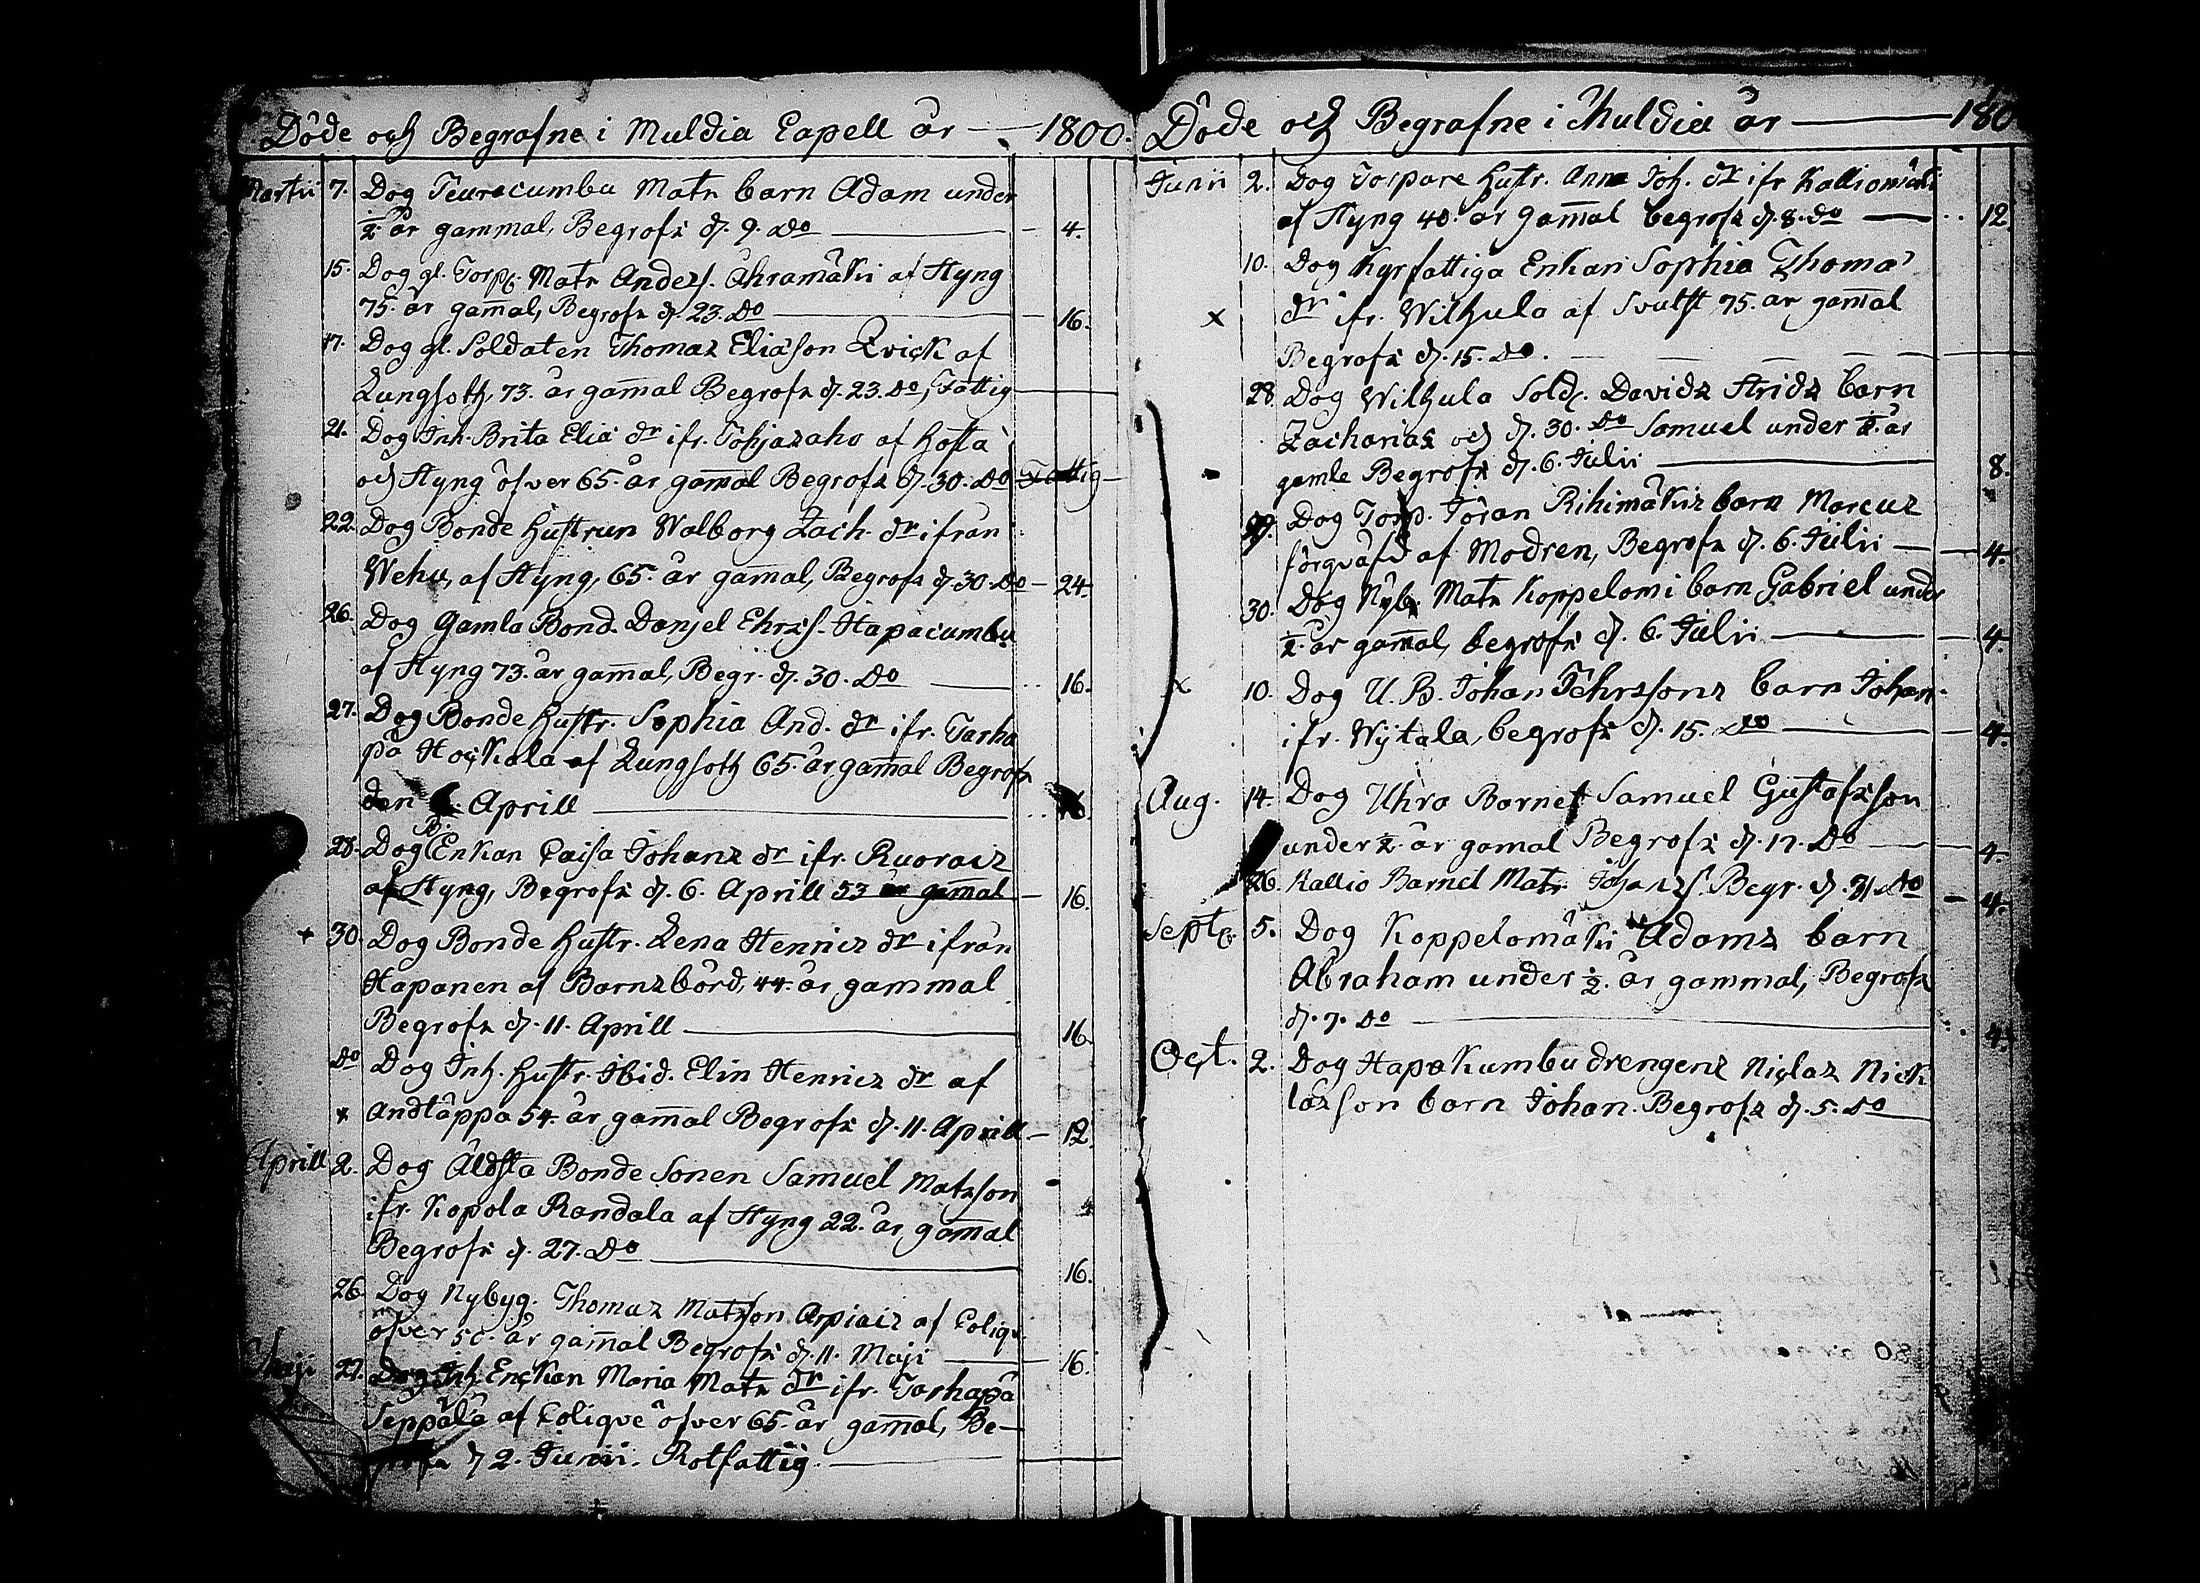 Döde och Begrafne i Muldia Capell år — 1800.
Martii 7. Dog Teuracumbu Mats barn Adam under
½ år gammal, Begrofs d. 9. do — 4.
15. Dog gl. Torp. Mats Anders. Ahramäki af Hyng
75. år gamal, Begrofs d. 23. do — 16.
17. Dog gl. Soldaten Thomas Eliæson Qvick af
Lungsoth, 73. år gamal Begrofs d. 23. do, Fattig
21. Dog Inh. Brita Eliæ dr ifr. Tohjasaho af Hosta
och Hyng öfver 65. år gamal Begrofs d. 30. do Fattig
22. Dog Bonde hustrun Walborg Zach. dr ifrån
Wehu, af Hyng, 65. år gamal, Begrofs d. 30. do — 24.
26. Dog Gamla Bond. Danjel Ehrss. Hapacumbu
af Hyng 73. år gamal, Begr. d. 30. do — 16.
27. Dog Bonde Hustr. Sophia And. dr ifr. Tarha
på Hockala af Lungsoth 65. år gamal Begrofs
den 6. Aprill — 16.
28. Dog B. Enkan Caisa Johans dr ifr. Ruorais
af Hyng, Begrofs d. 6. Aprill 53 år gamal — 16.
+ 30. Dog Bonde hustr. Lena Henrics dr ifrån
Hapanen af Barnsbörd, 44. år gammal
Begrofs d. 11. Aprill — 16.
do Dog Inh. Hustr. Ibid. Elin Henrics dr af
x Andtäppa 54. år gamal Begrofs d. 11. Aprill — 12.
Aprill 2. Dog Äldsta Bonde Sonen Samuel Matsson
ifr. Kopola Randala af Hyng 22. år gamal
Begrofs d. 27. do — 16.
26. Dog Nybyg. Thomas Matsson Arpiais af Colique
öfver 50. år gamal Begrofs d. 11. Maji — 16.
Maji 27. Dog Inh. Enckan Maria Mats dr ifr. Tarhapä
Seppälä af Colique öfver 65. år gamal, Be-
grofs d 2. Junii. Rotfattig.
Döde och Begrafne i Muldia år — 180
Junii 2. Dog Torpare hustr. Anna Joh. dr ifr Kalliomäki
af Hyng 40. år gamal begrofs d. 8. do — 12.
10. Dog Kyrfattiga Enkan Sophia Thomæ
x dr ifr. Wilhula af Svulst 75. år gamal
Begrofs d. 15. do.
28. Dog Wilhula Sold. Davids Strids barn
Zacharias och d. 30. do Samuel under ½. år
gamle Begrofs d. 6. Julii — 8.
29. Dog Torp. Jöran Rihimäkis barn Marcus
förqväfd af Modren, Begrofs d. 6. Julii — 4.
30. Dog Nyb. Mats Koppelomi barn Gabriel under
½. år gamal, begrofs d. 6. Julii — 4.
x 10. Dog U. B. Johan Tehrssons barn Johan
ifr. Wijtala, begrofs d. 15. do — 4.
Aug. 14. Dog Uhro Barnet Samuel Gustafsson
under ½ år gamal Begrofs d. 17. do — 4.
26. Kallio Barnet Mats Johans. Begr. d. 31. do — 4.
Septb. 5. Dog Koppelomäki Adams barn
Abraham under ½. år gammal, Begrofs
d. 7. do — 4.
Oct. 2. Dog Hapakumbu drengens Niclas Nick
lasson barn Johan. Begrofs d. 5. do